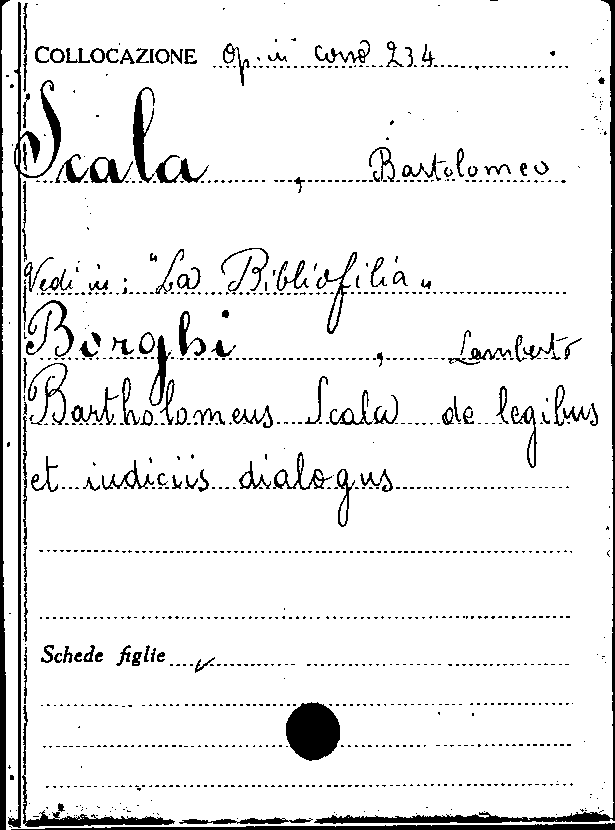 COLLOCAZIONE Op. in corso 234
Scala, Bartolomeo
Vedi in: "La Bibliofilia„
Borghi, Lamberto
Bartholomeus Scala de legibus
et iudiciis dialogus
Schede figlie ✓